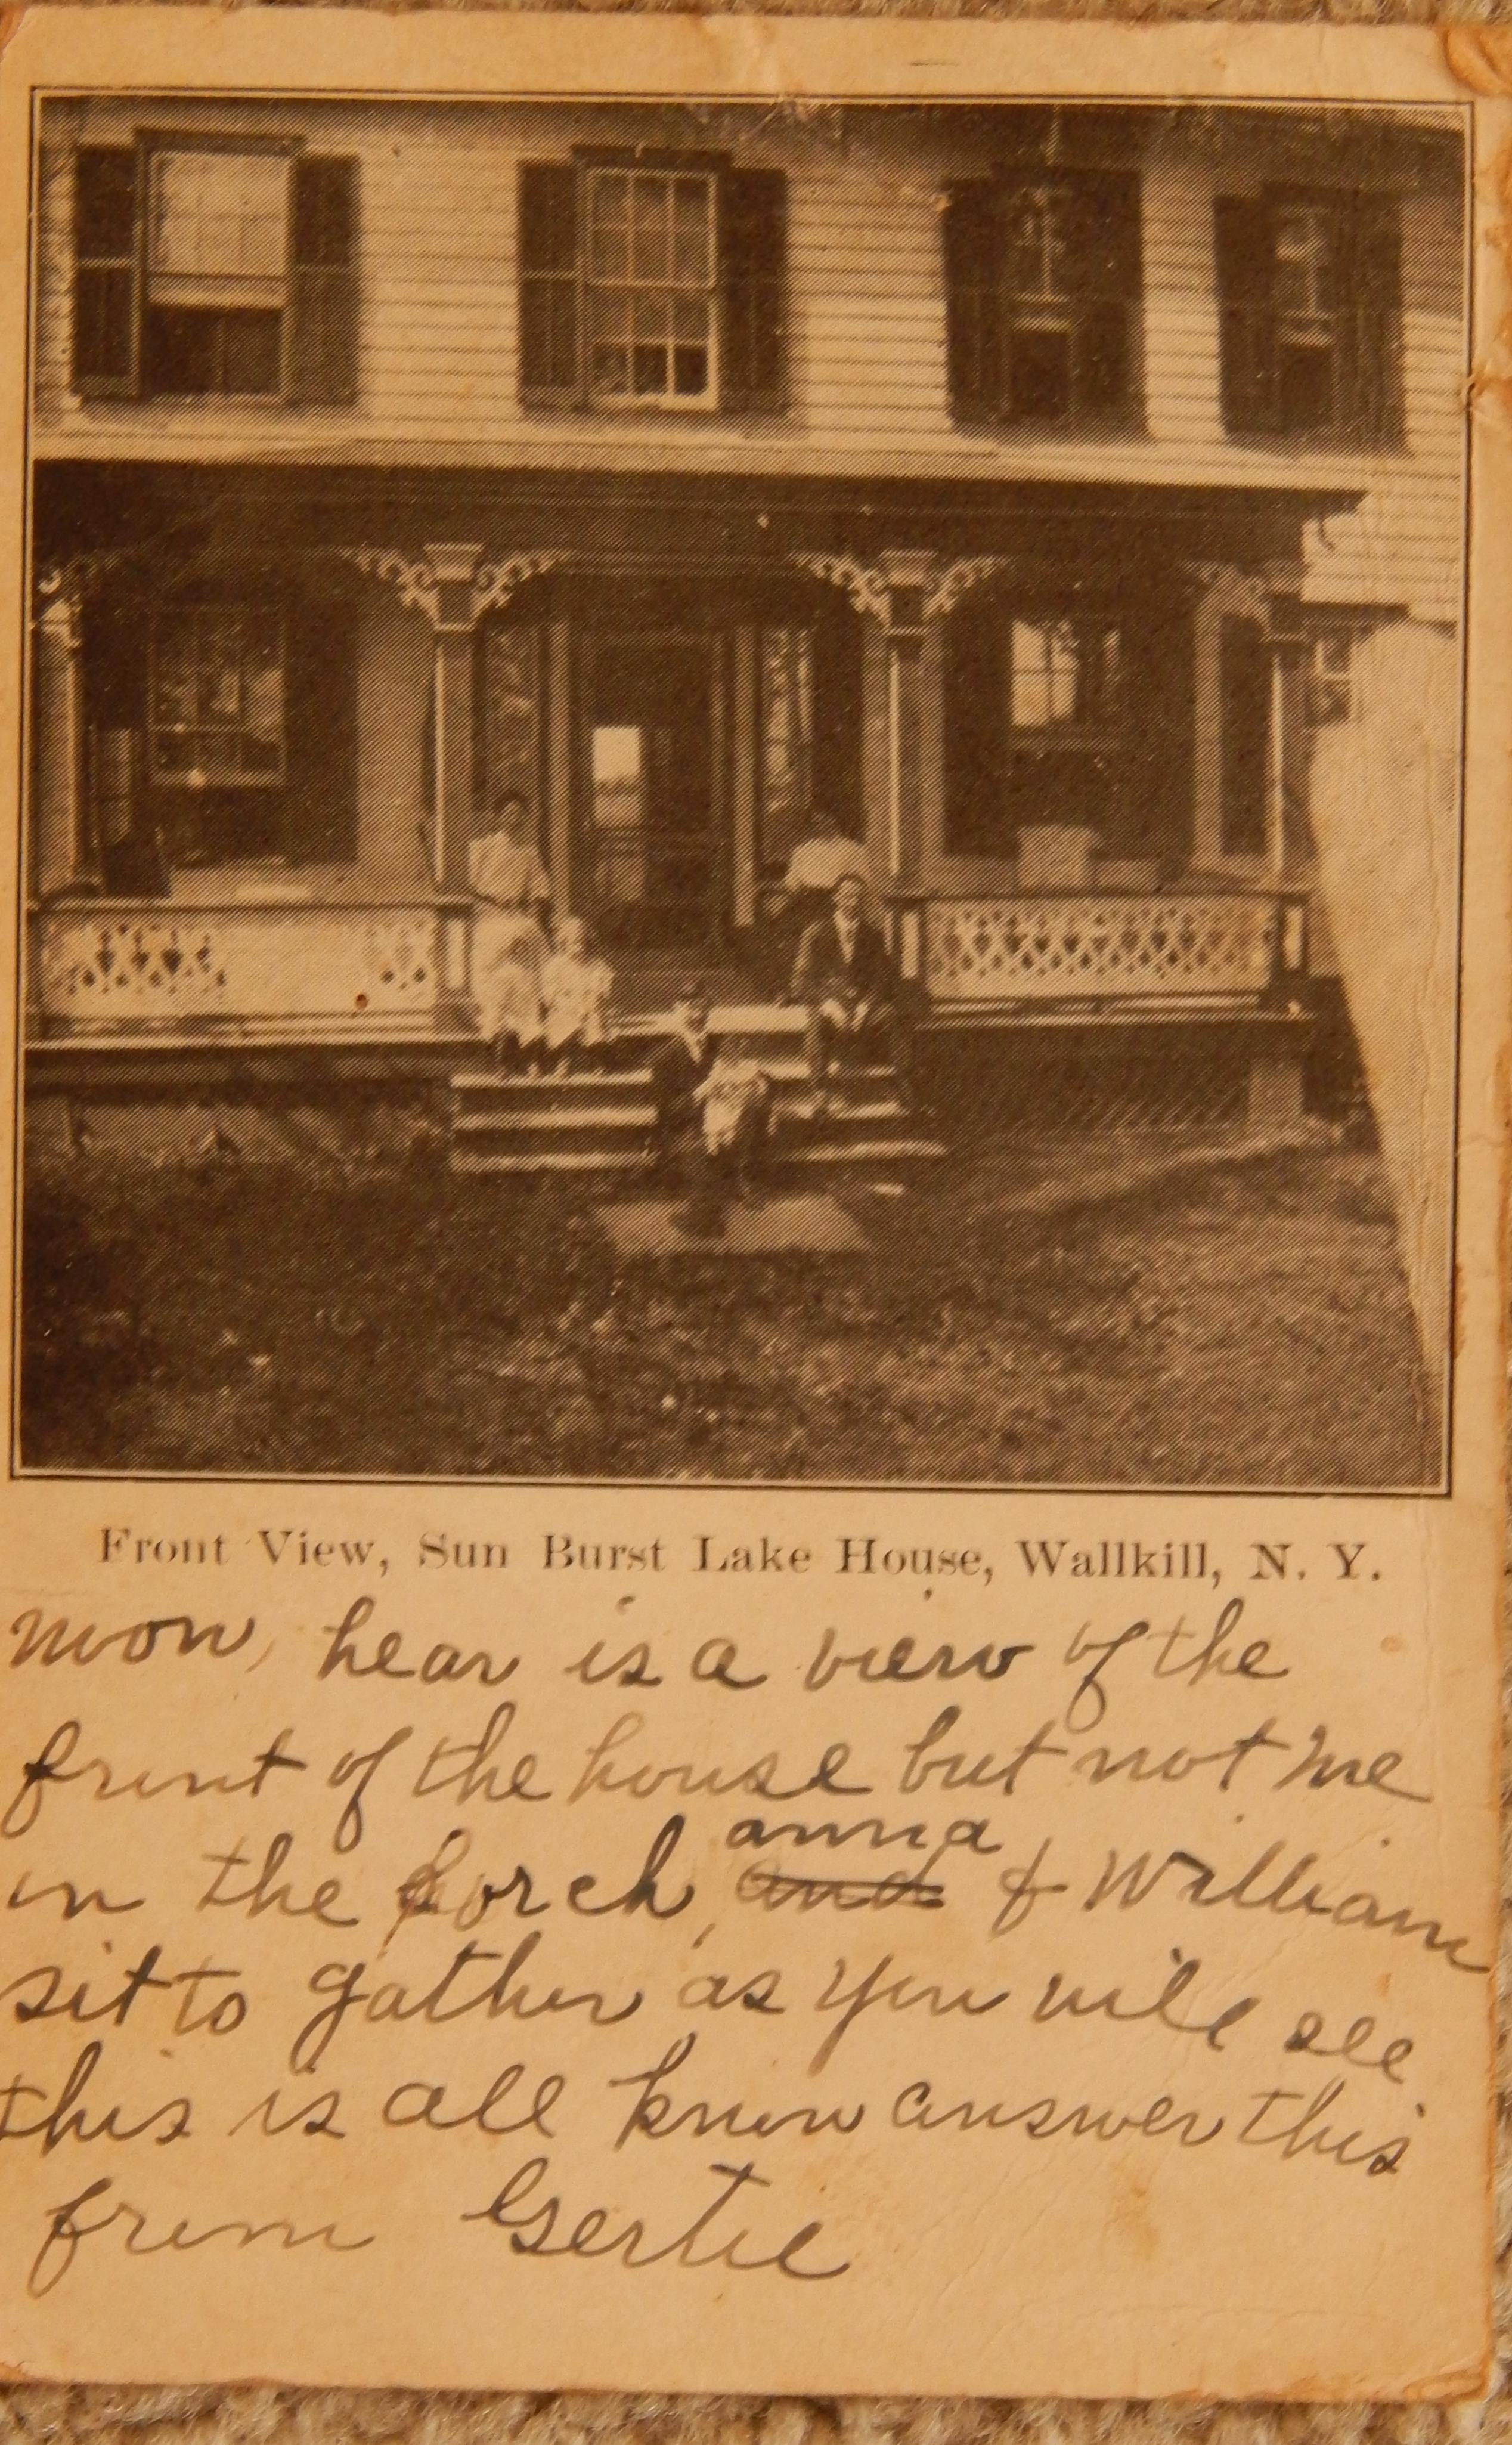 Front View, Sun Burst Lake House, Wallkill, N. Y.
mom, hear is a view of the
frunt of the house but not me
in the porch, anna and & William
sit to gather as you will see
this is all know answer this
from Gertie